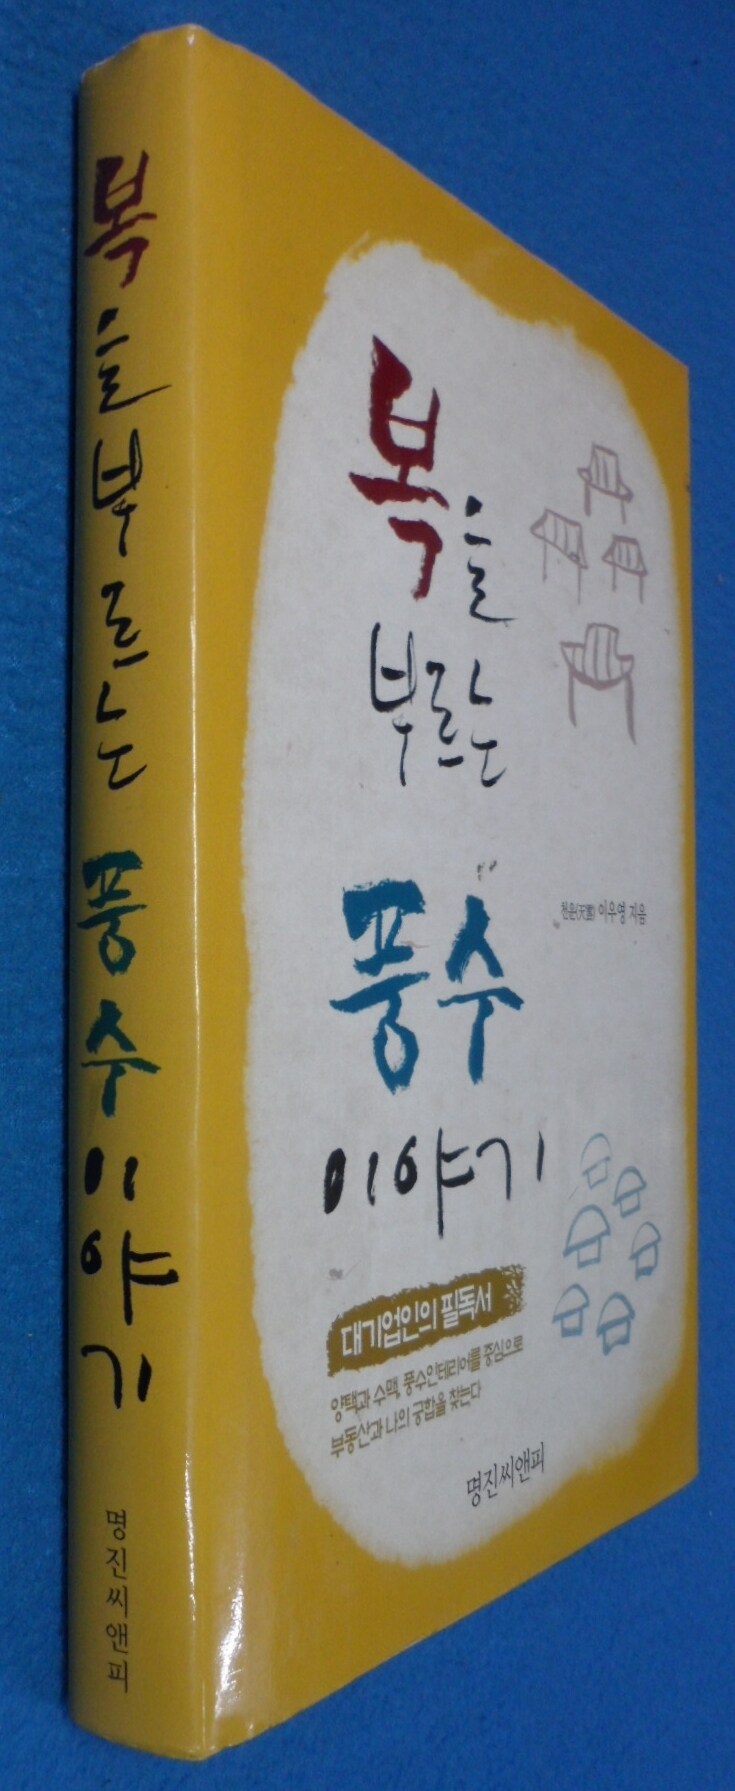 복을부르는 풍수이야기
명진씨앤피
복을
부르는
풍수
이야기
천운(天雲) 이우영 지음
대기업인의 필독서
양택과 수맥, 풍수인테리어를 중심으로
부동산과 나의 궁합을 찾는다
명진씨앤피